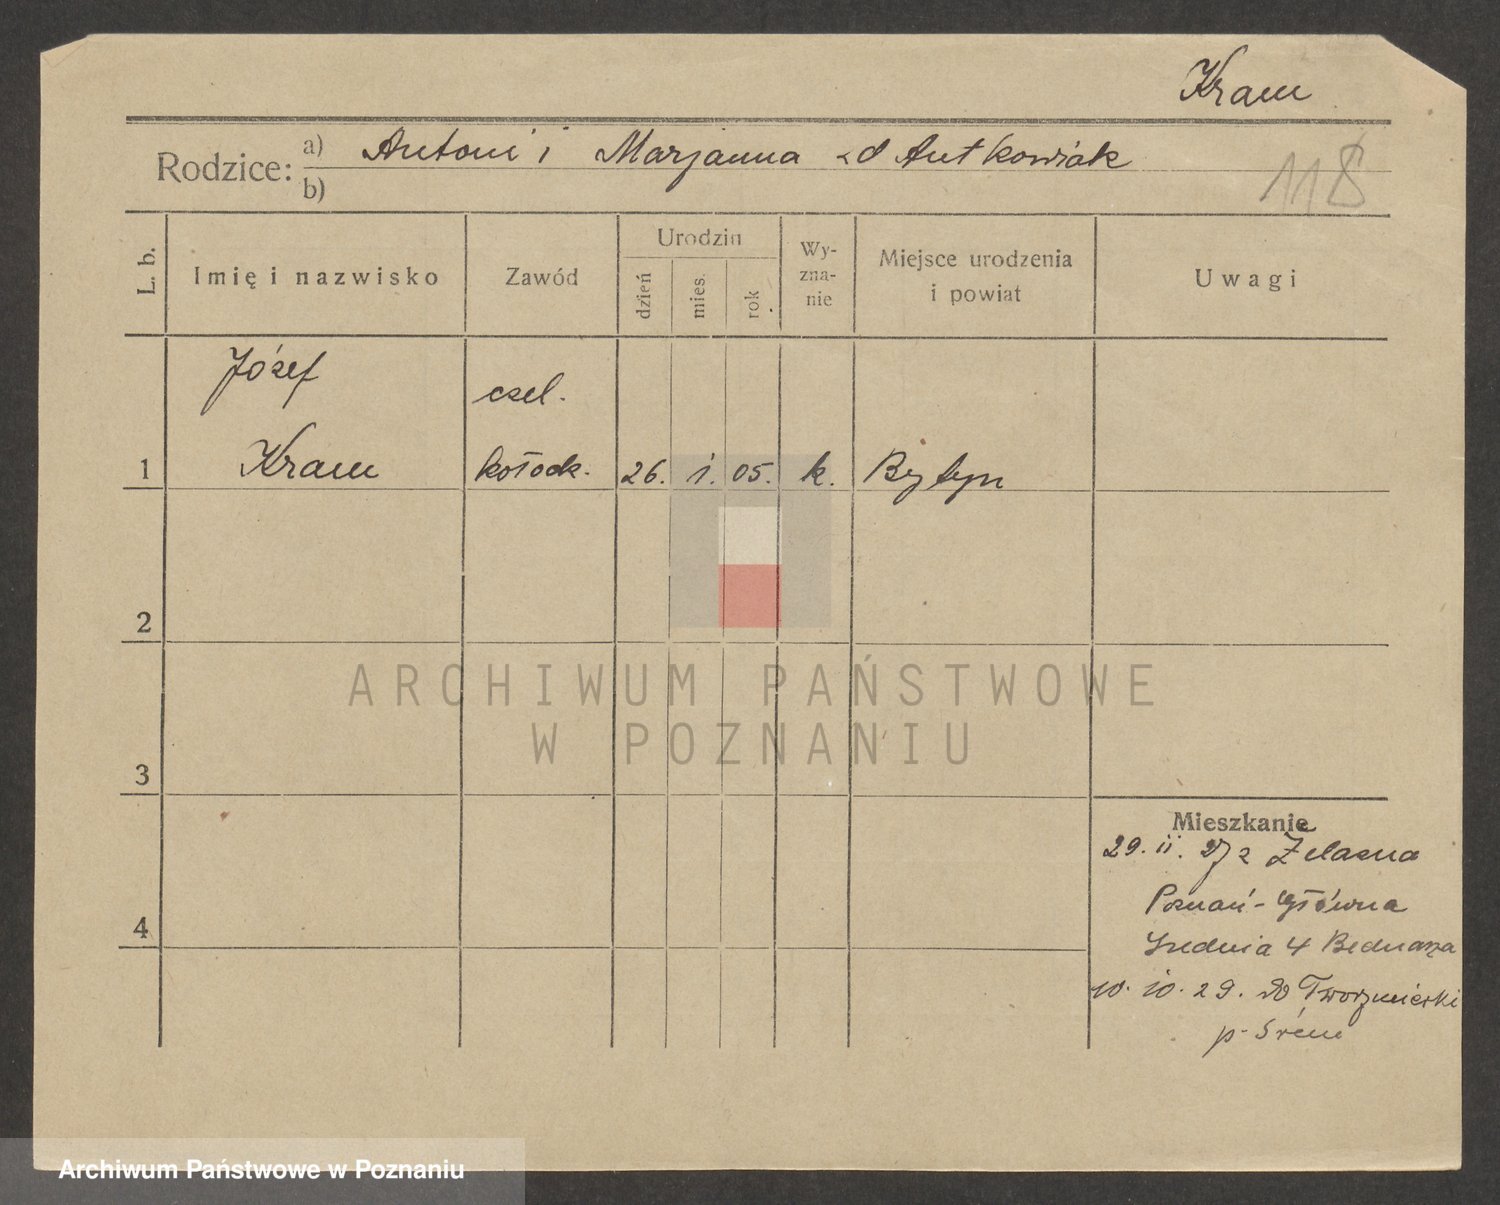 Kram
Rodzice: a) Antoni i Marjanna zd Antkowiak
b)
118
L. b.
Imię i nazwisko
Zawód
Urodzin
dzień
mies.
rok
Wy-
zna-
nie
Miejsce urodzenia
i powiat
Uwagi
Józef
czel.
1
Kram
kołodz.
26.
i.
05.
k.
Bytyn
2
3
4
ARCHIWUM PAŃSTWOWE
W POZNANIU
Mieszkanie
29. ii. 27 z Żelazna
Poznań - Główna
Średnia 4 Bednarza
10. 10. 29. do
p. Śrem
Archiwum Państwowe w Poznaniu